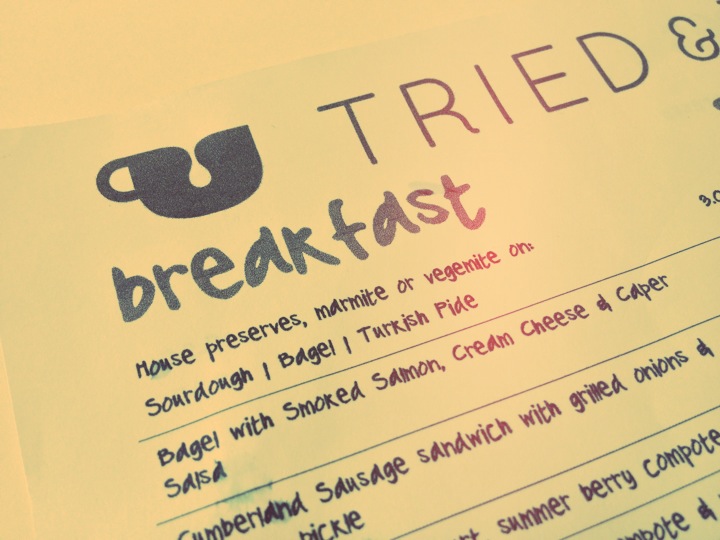 TRIED &
breakfast
3.0
House preserves, marmite or vegemite on:
Sourdough | Bagel | Turkish Pide
Bagel with Smoked Salmon, Cream Cheese & Caper
Salsa
Cumberland Sausage sandwich with grilled onions &
pickle
summer berry compote
compote &